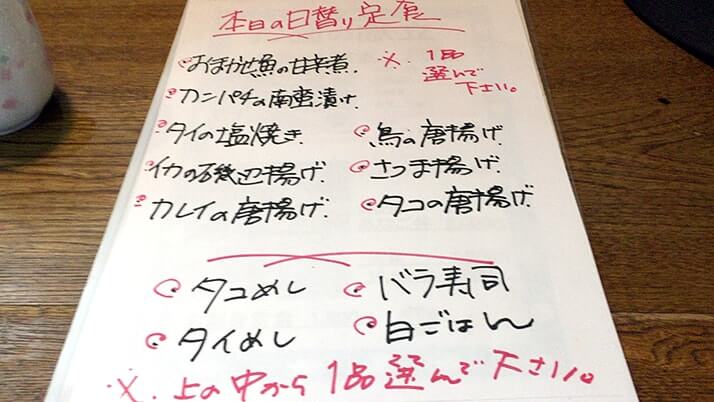 本日の日替り定食
おまかせ魚の甘辛煮.
※. 1品
選んで
下さい。
カンパチの南蛮漬け.
タイの塩焼き
鳥の唐揚げ.
イカの磯辺揚げ.
さつま揚げ.
カレイの唐揚げ.
タコの唐揚げ.
タコめし
バラ寿司
タイめし
白ごはん
※. 上の中から1品選んで下さい。